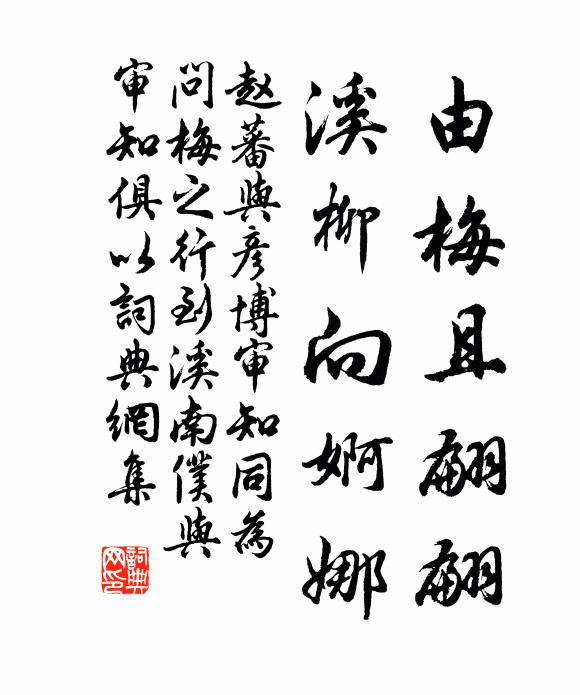 由梅且翩翩
溪柳向婀娜
赵蕃與彦博审知同為
問梅之行到溪南僕與
审知俱以詞典網集
詞典网印